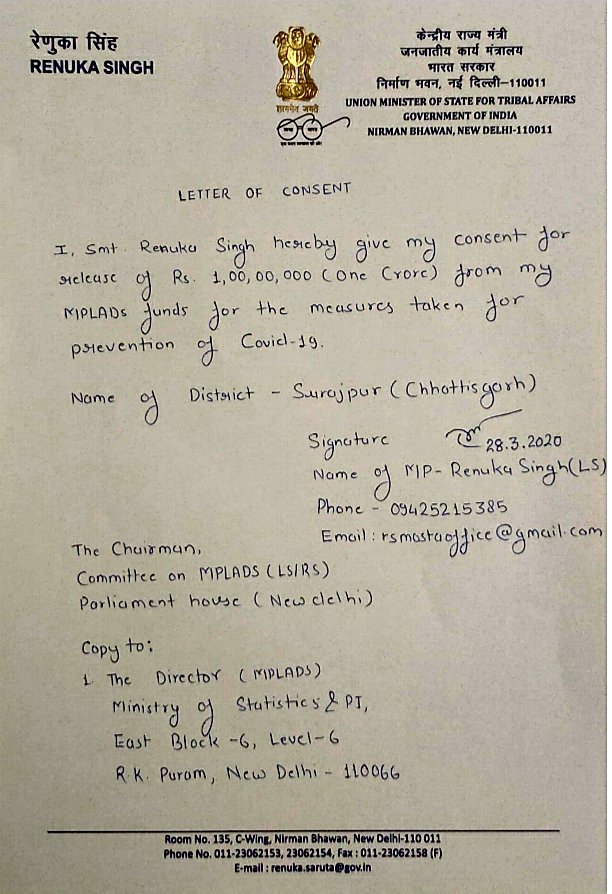 रेणुका सिंह
RENUKA SINGH
सत्यमेव जयते
केन्द्रीय राज्य मंत्री
जनजातीय कार्य मंत्रालय
भारत सरकार
निर्माण भवन, नई दिल्ली–110011
UNION MINISTER OF STATE FOR TRIBAL AFFAIRS
GOVERNMENT OF INDIA
NIRMAN BHAWAN, NEW DELHI-110011
LETTER OF CONSENT
I, Smt. Renuka Singh hereby give my consent for
release of Rs. 1,00,00,000 (One Crore) from my
MPLADs funds for the measures taken for
prevention of Covid-19.
Name of District - Surajpur (Chhattisgarh)
Signature 28.3.2020
Name of MP- Renuka Singh(LS)
Phone - 09425215385
Email : rsmostaoffice@gmail.com
The Chairman,
Committee on MPLADS (LS/RS)
Parliament house (New delhi)
Copy to:
1. The Director (MPLADS)
Ministry of Statistics & PI,
East Block -6, Level-6
R.K. Puram, New Delhi - 110066
Room No. 135, C-Wing, Nirman Bhawan, New Delhi-110 011
Phone No. 011-23062153, 23062154, Fax : 011-23062158 (F)
E-mail : renuka.saruta@gov.in